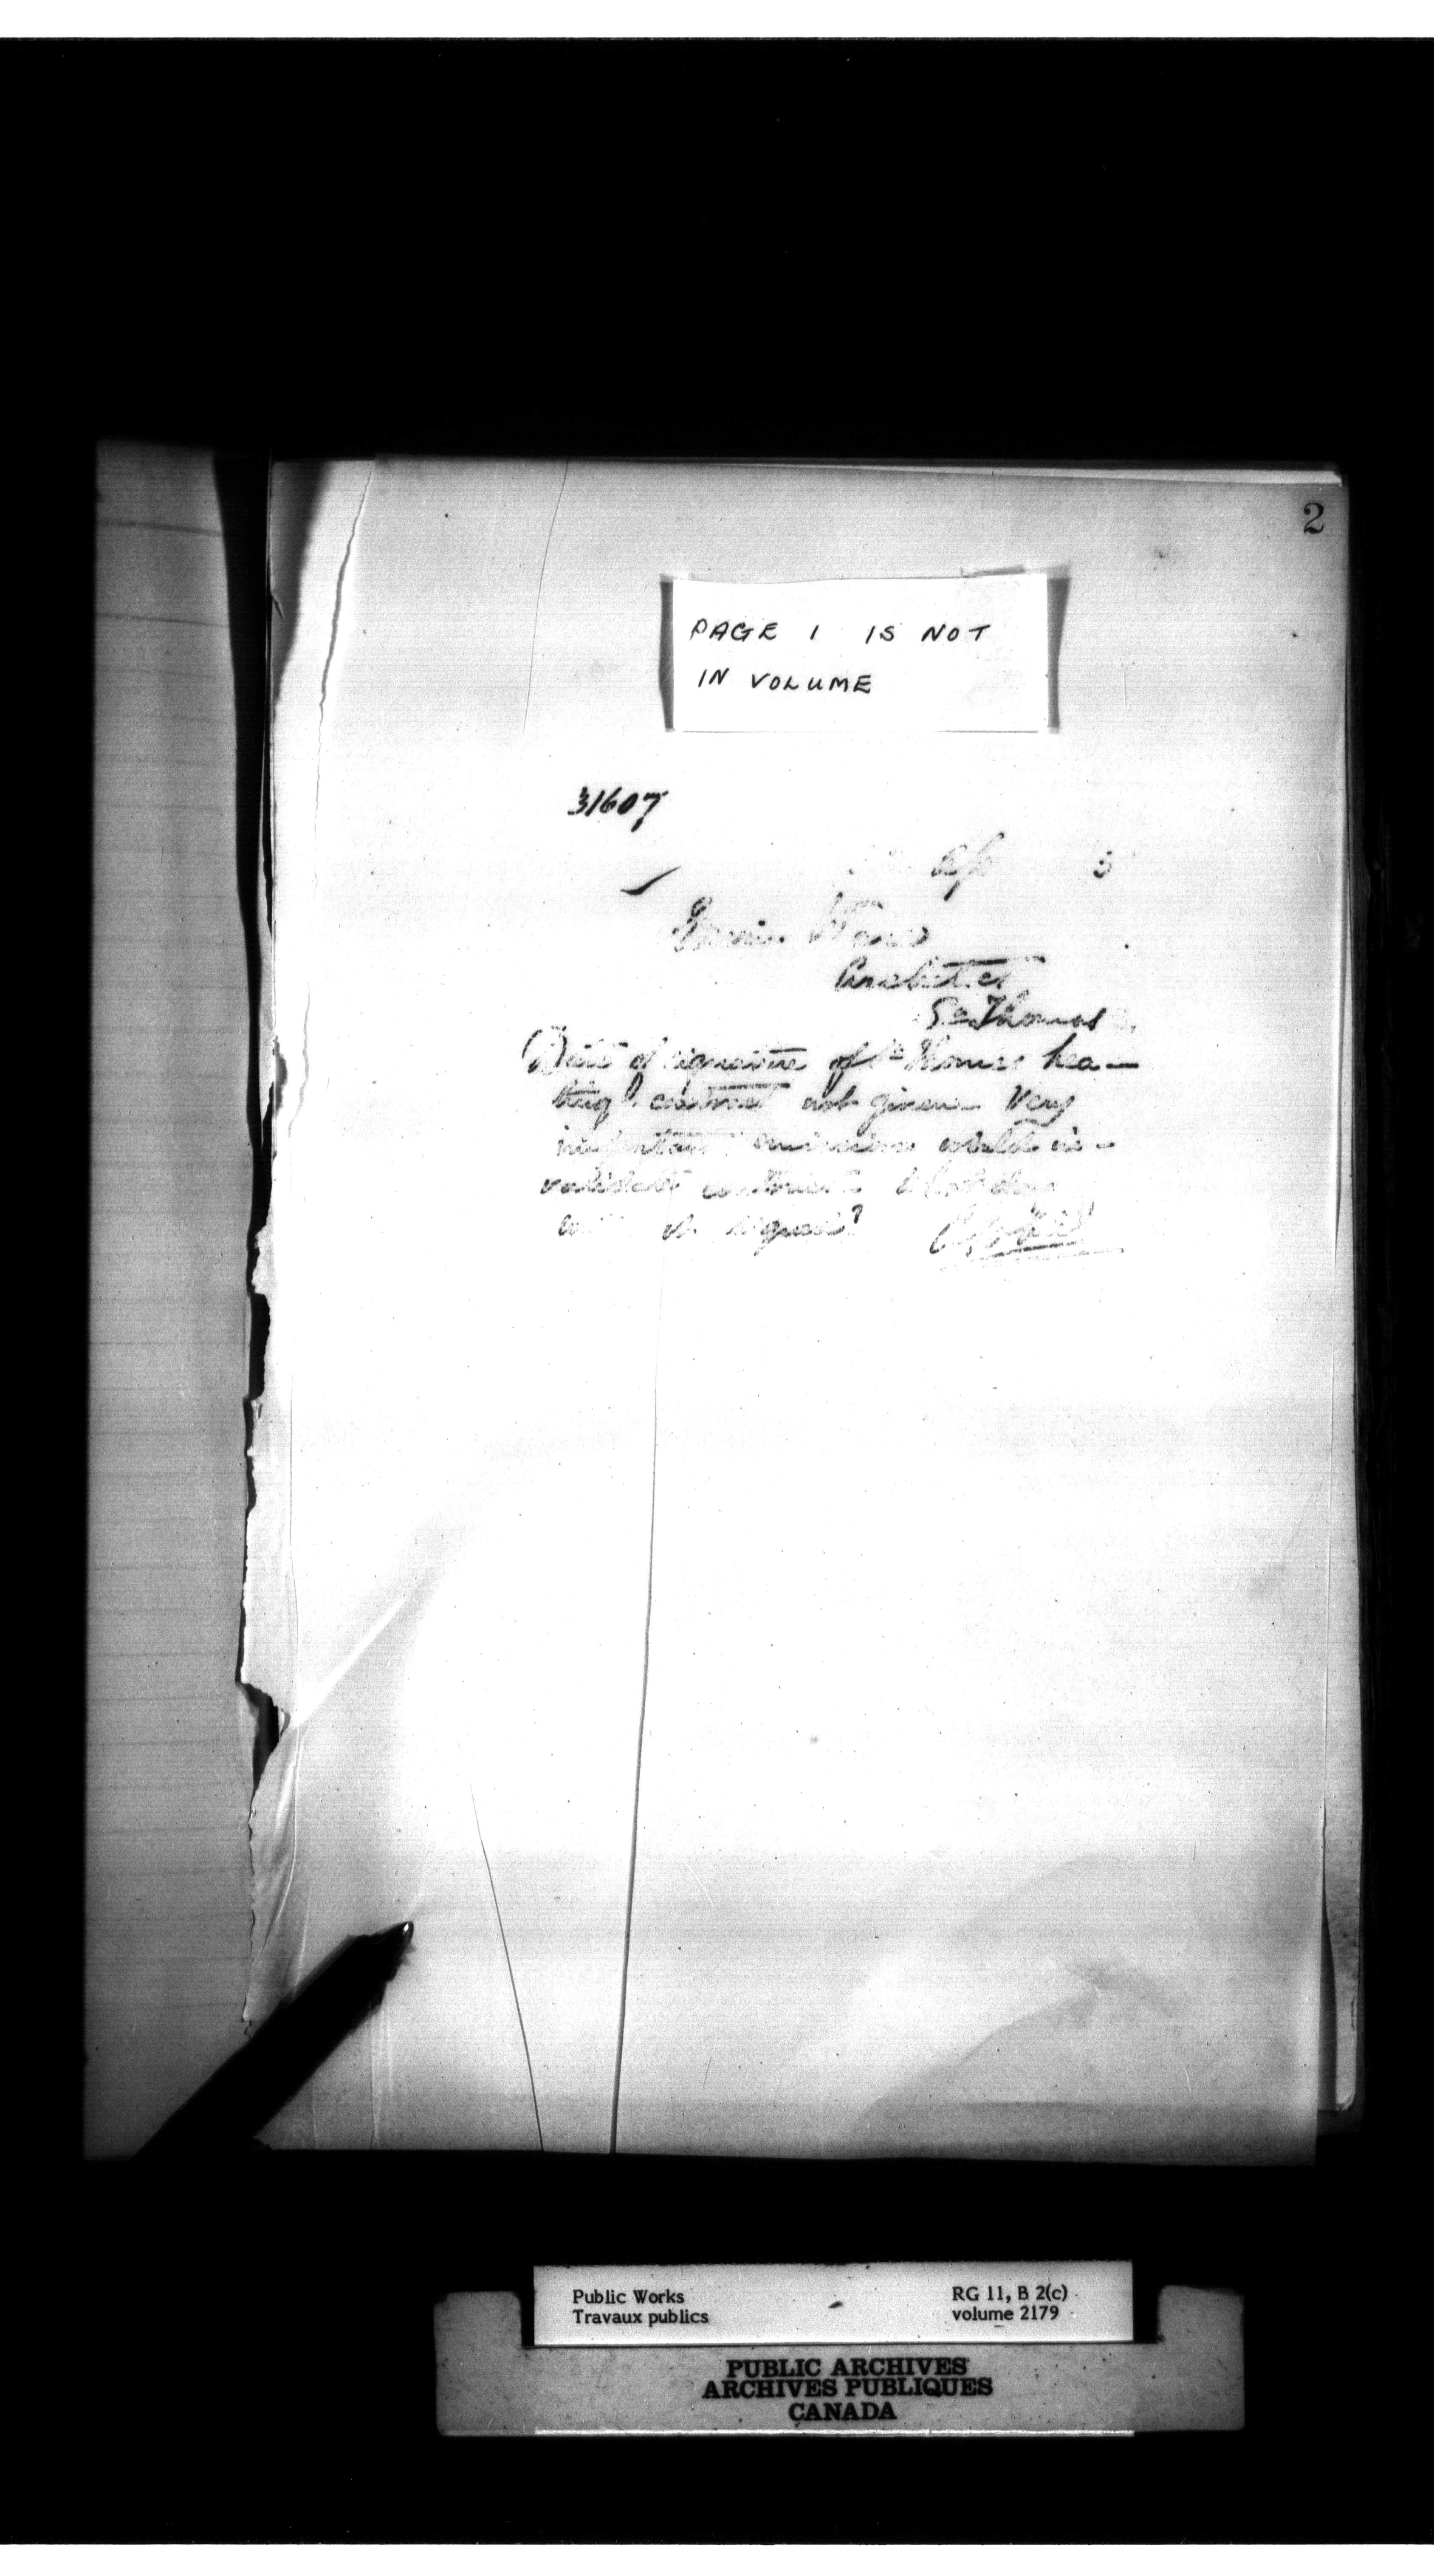 2
PAGE 1 IS NOT
IN VOLUME
31607
Architect
St Thomas
Date of signature of St Thomas hea-
ting contract not given Very
important omission would in-
validate contract What day
signed?
Public Works
Travaux publics
RG 11, B 2(c)
volume 2179
PUBLIC ARCHIVES
ARCHIVES PUBLIQUES
CANADA